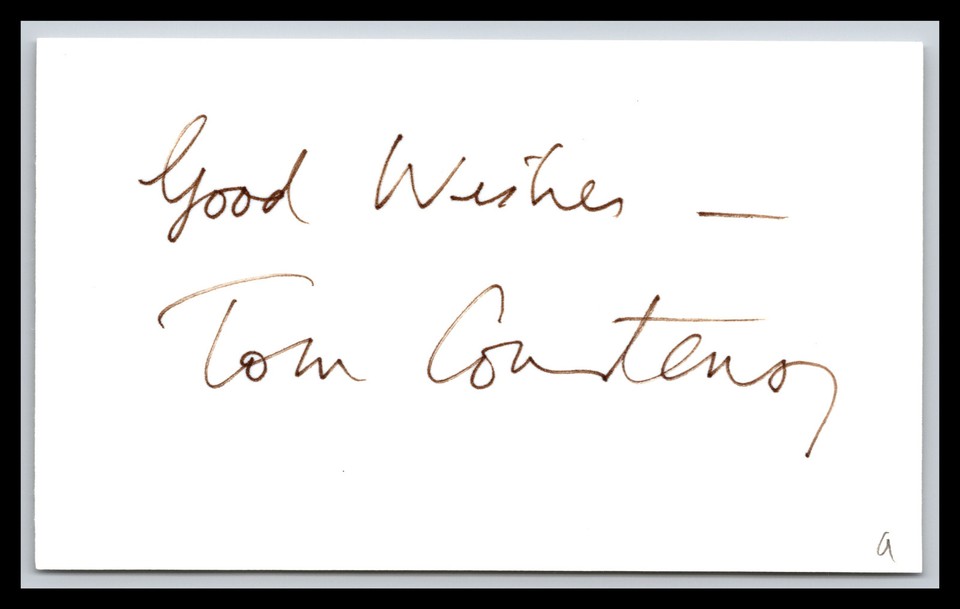 Good Wishes —
Tom Courtenay
a